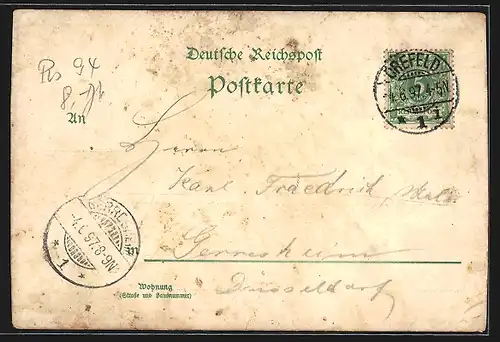 Deutsche Reichspost
Postkarte
CREFELD
4.6.97.4-5N
* 1 i
An
Herrn
Karl Friedrich
in
Gerresheim
Düsseldorf
GERRESHEIM
4.6.97.8-9N
* 1 *
Wohnung
(Straße und Hausnummer)